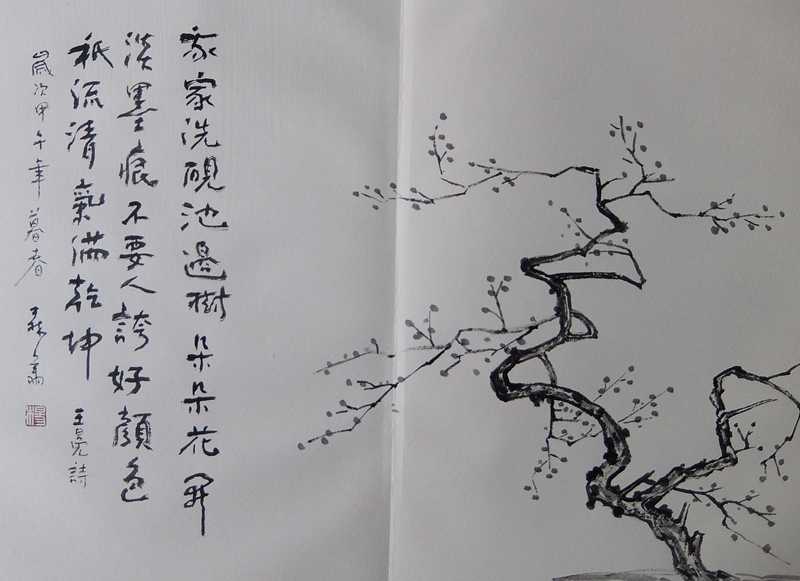 我家洗硯池邊樹朵朵花開
淡墨痕不要人誇好顏色
祇流清氣滿乾坤 王冕詩
歲次甲午年暮春